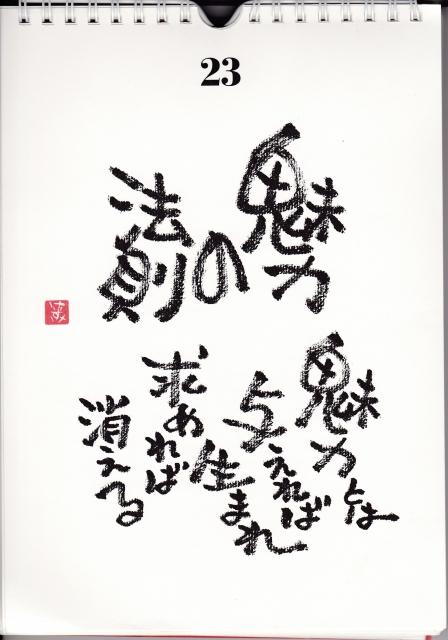 23
魅力
の
法則
魅力とは
与えれば
生まれ
求めれば
消える